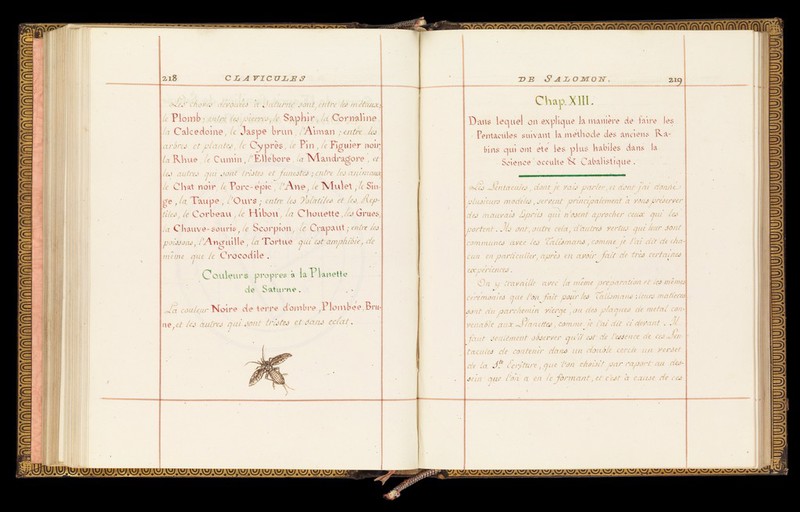 218 CLAVICULES
Les choses dévouées à Saturne sont, entre les métaux,
le Plomb; entre les pierres, le Saphir, la Cornaline
la Calcedoine, le Jaspe brun, l'Aiman; entre les
arbres et plantes, le Cyprès, le Pin, le Figuier noir,
la Rhue, le Cumin, l'Ellebore, la Mandragore, et
les autres qui sont tristes et funestes; entre les animaux
le Chat noir, le Porc-épic, l'Ane, le Mulet, le Sin-
ge, la Taupe, l'Ours; entre les Volatiles et les Rep-
tiles, le Corbeau, le Hibou, la Chouette, les Grues,
la Chauve-souris, le Scorpion, le Crapaut; entre les
poissons, l'Anguille, la Tortue qui est amphibie, de
même que le Crocodile.
Couleurs propres à la Planette
de Saturne.
La couleur Noire de terre d'ombre, Plombée, Bru-
ne, et les autres qui sont tristes et sans eclat.
DE SALOMON. 219
Chap. XIII.
Dans lequel on explique la manière de faire les
Pentacules suivant la méthode des anciens Ra-
bins qui ont été les plus habiles dans la
Science occulte & Cabalistique.
Les Pentacules, dont je vais parler, et dont j'ai donné
plusieurs modèles, servent principalement à vous préserver
des mauvais Esprits qui n'osent aprocher ceux qui les
portent. Ils ont, outre cela, d'autres vertus qui leur sont
communes avec les Talismans, comme je l'ai dit de cha-
cun en particulier, après en avoir fait de très certaines
expériences.
On y travaille avec la même preparation et les mêmes
cérémonies que l'on fait pour les Talismans. Leurs matieres
sont du parchemin vierge, ou des plaques de metal con-
venable aux Planettes, comme je l'ai dit ci devant. Il
faut seulement observer qu'il est de l'essence de ces Pen-
tacules de contenir dans un double cercle un verset
de la Ste Ecriture, que l'on choisit par raport au des-
sein que l'on a en le formant, et c'est à cause de ces